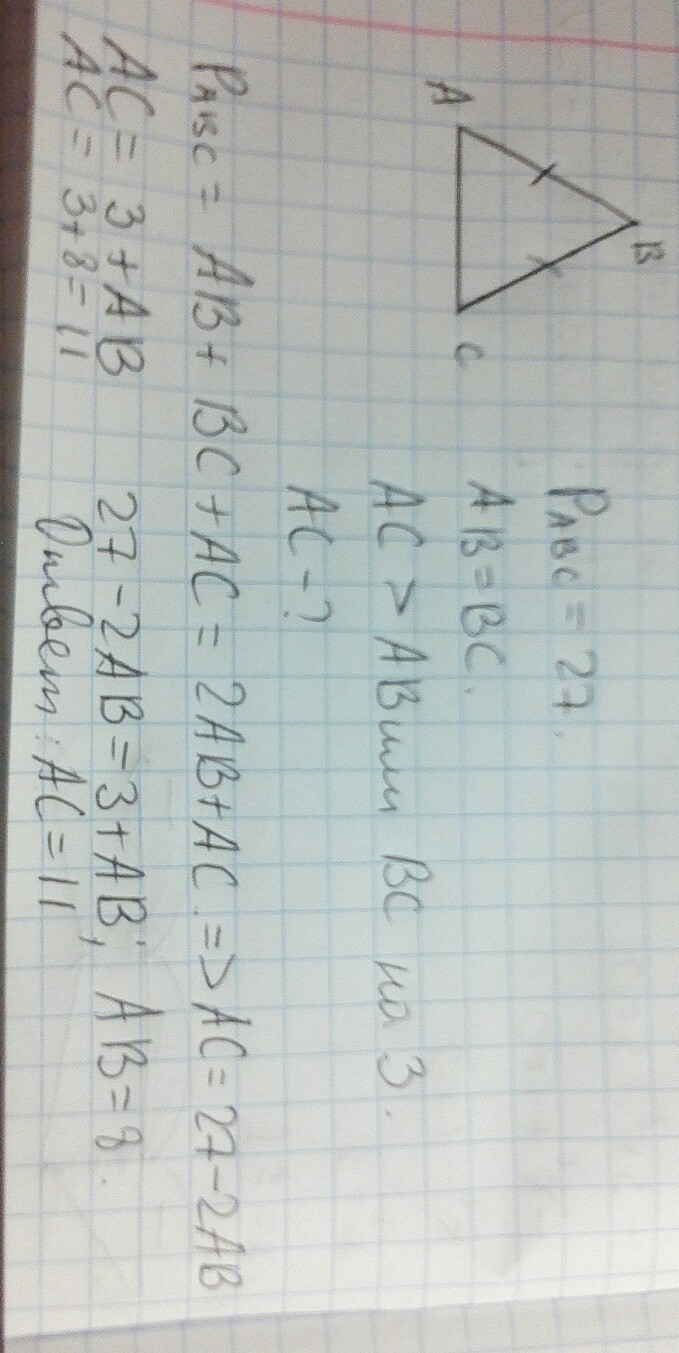 B
A
C
PABC = 27.
AB = BC.
AC > AB или BC на 3.
AC - ?
PABC = AB + BC + AC = 2AB + AC => AC = 27 - 2AB
AC = 3 + AB 27 - 2AB = 3 + AB; AB = 8.
AC = 3 + 8 = 11 Ответ: AC = 11